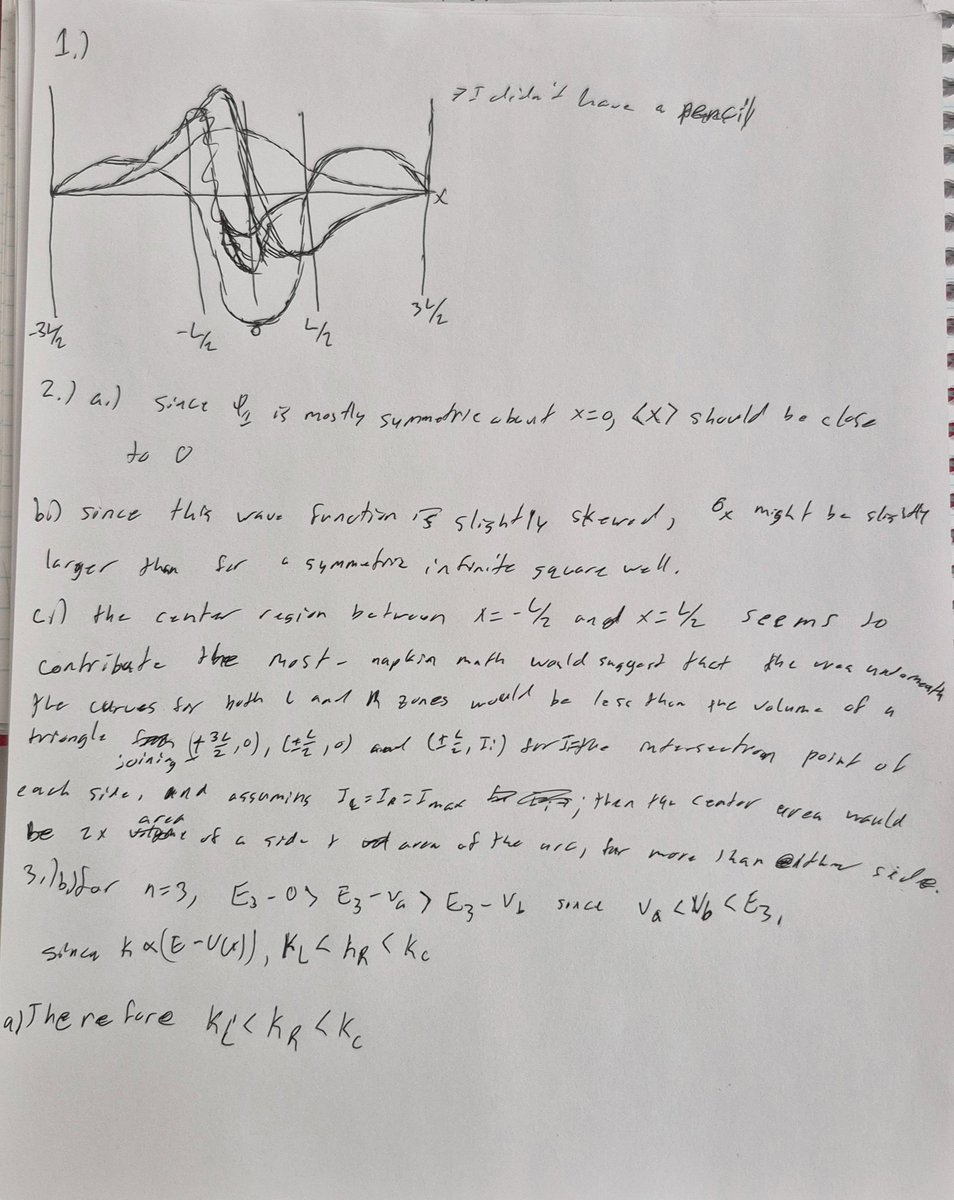 1.)
→ I didn't have a pencil
x
-3L/2
-L/2
0
L/2
3L/2
2.) a.) since ψ₁ is mostly symmetric about x=0, <x> should be close
to 0
b.) since this wave function is slightly skewed, σx might be slightly
larger than for a symmetric infinite square well.
c.) the center region between x=-L/2 and x=L/2 seems to
contribute the most - napkin math would suggest that the area underneath
the curves for both L and R zones would be less than the volume of a
triangle joining (±3L/2,0), (±L/2,0) and (±L/2, Iᵢ) for I=the intersection point of
each side, and assuming I_L=I_R=I_max; then the center area would
be 2x area of a side + area of the arc, far more than either side.
3.) b) for n=3, E₃-0 > E₃-Va > E₃-Vb since Va<Vb<E₃,
since k∝(E-V(x)), k_L<k_R<k_c
a) Therefore k_L<k_R<k_c